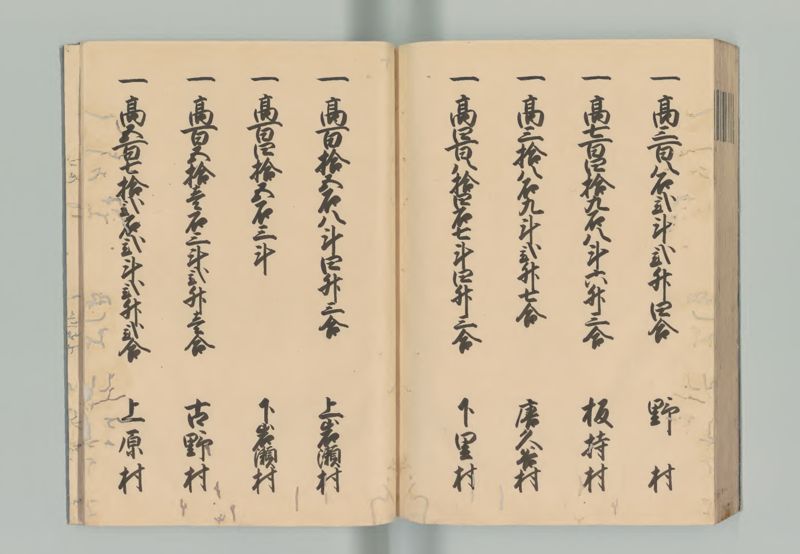 一高三百八石弐斗弐升四合 野村
一高七百四拾九石八斗六升三合 板持村
一高三拾八石九斗弐升七合 唐久谷村
一高四百八拾四石七斗四升三合 下里村
一高百拾五石八斗四升三合 上岩瀬村
一高百四拾五石三斗 下岩瀬村
一高百五拾壱石三斗弐升壱合 古野村
一高五百七拾弐石弐斗弐升弐合 上原村